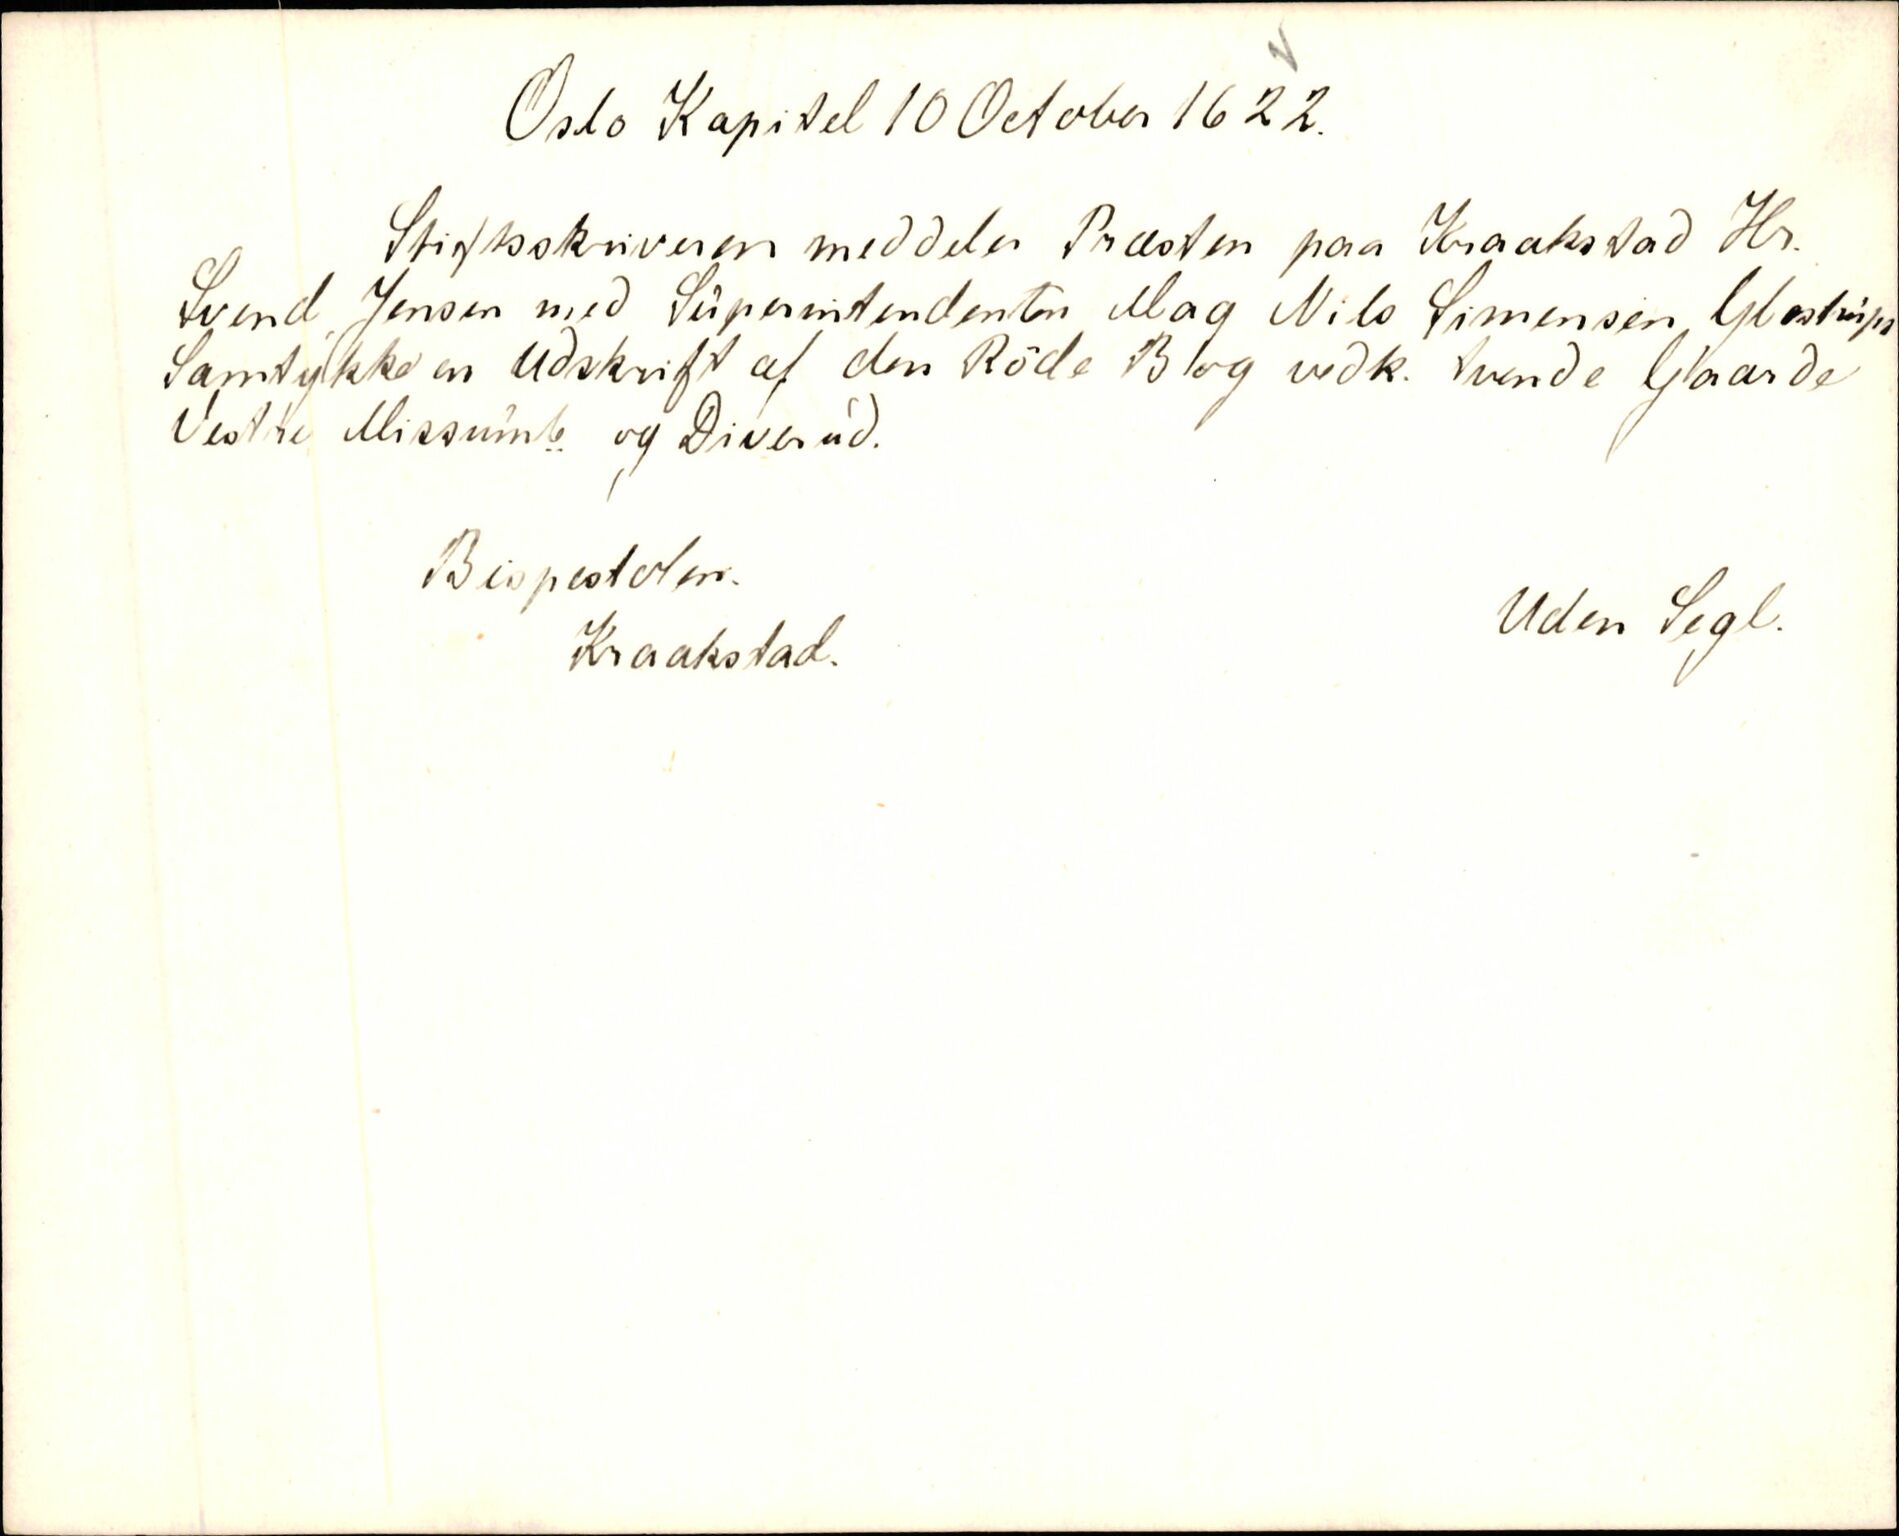 Oslo Kapitel 10 October 1622.
Stiftsskriveren meddeler Præsten paa Kraakstad Hr.
Svend Jensen med Süperintendenten Mag Nils Simensen Glostrüps
Samtykke en Udskrift af den Röde Bog vedk. tvende Gaarde
Vestre og Diverúd.
Bispestolen.
Kraakstad.
Uden Segl.